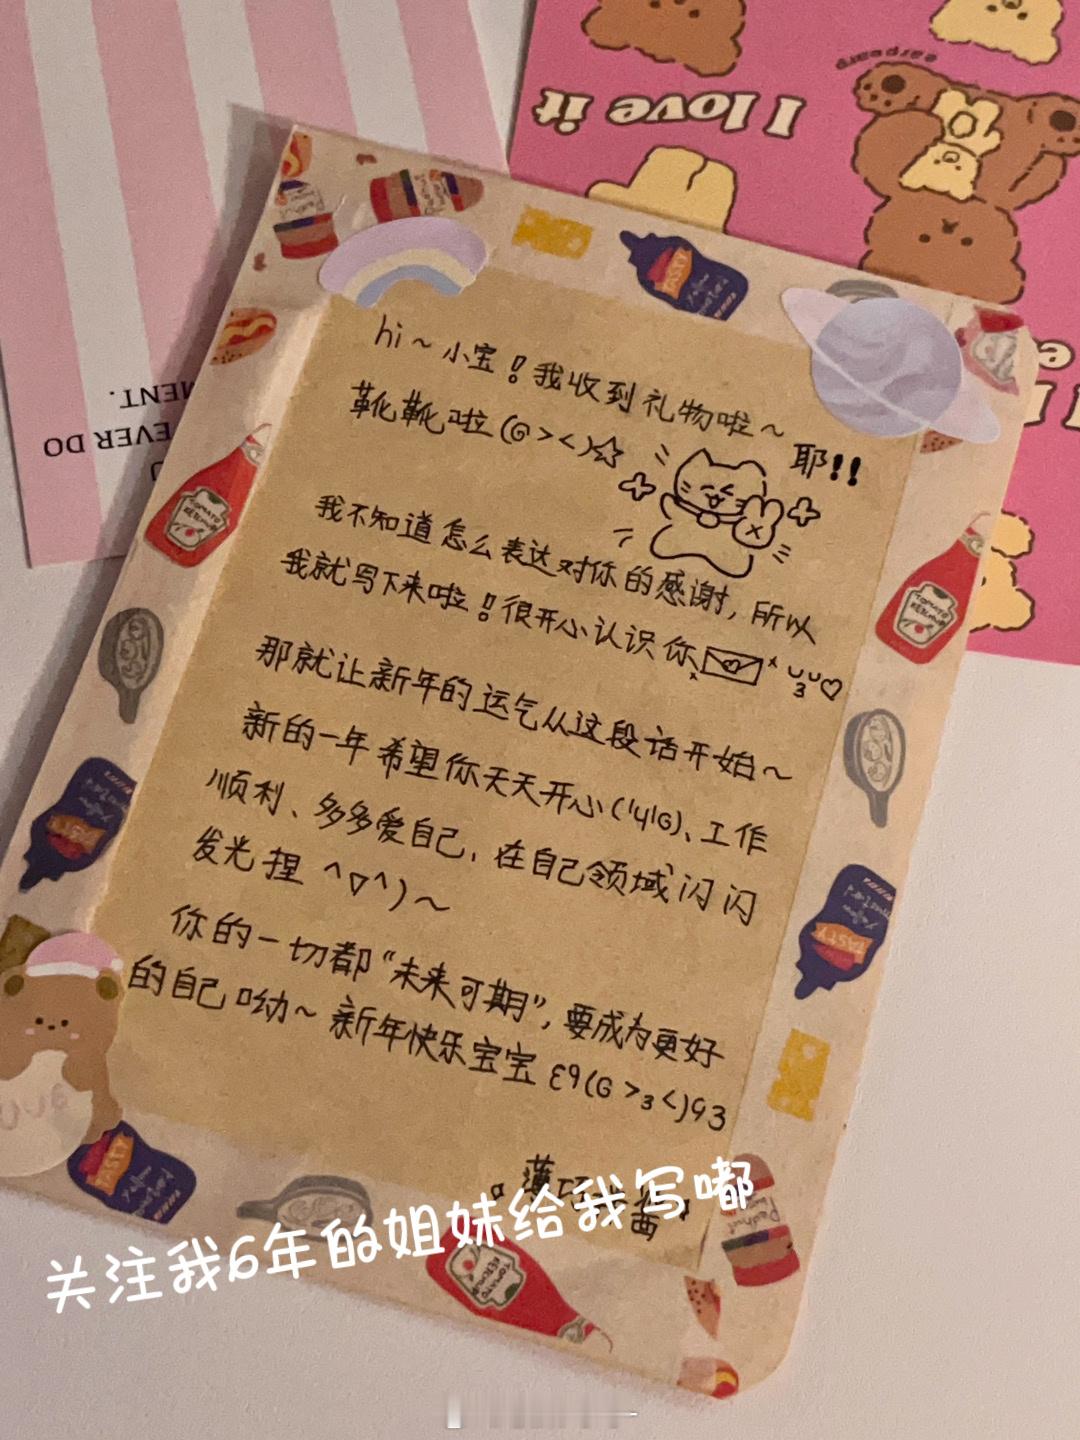 I love it
earpearp
MENT.
EVER DO
U
hi～小宝！我收到礼物啦～
靴靴啦(G><)☆
耶!!
我不知道怎么表达对你的感谢，所以
我就写下来啦！很开心认识你
那就让新年的运气从这段话开始～
新的一年希望你天天开心('ч'G)、工作
顺利、多多爱自己、在自己领域闪闪
发光捏 ^▽^)～
你的一切都“未来可期”，要成为更好
的自己呦～新年快乐宝宝 ε9(G >₃<)93
薄巧
关注我6年的姐妹给我写嘟
TASTY
TOMATO
KETCHUP
TOMATO
KETCHUP
TASTY
TASTY
TASTY
Peanut
TOMATO
KETCHUP